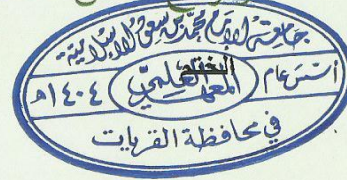 جامعة الإمام محمد بن سعود الإسلامية
المعهد العلمي
أسس عام ١٤٠٤ه
في محافظة القريات